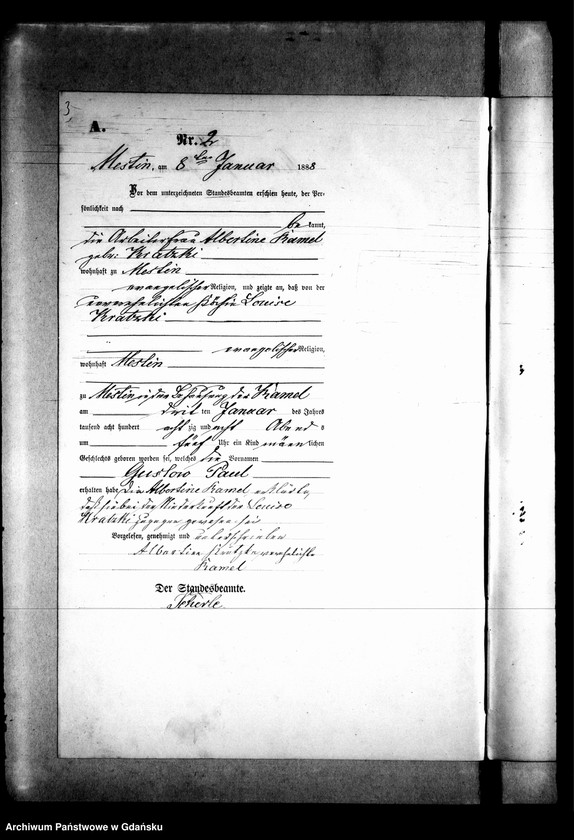 3
A.
Nr. 2
Mestin, am 8 ten Januar 1888
Vor dem unterzeichneten Standesbeamten erschien heute, der Per-
sönlichkeit nach
be kannt,
die Arbeiterfrau Albertine Kamel
geb: Kratzki
wohnhaft zu Mestin
evangelischer Religion, und zeigte an, daß von der
unverehelichten Louise
Kratzki
evangelischer Religion,
wohnhaft Mestin
zu Mestin in der Behausung der Kamel
am drit ten Januar des Jahres
tausend acht hundert acht zig und acht Abend s
um fünf Uhr ein Kind männ lichen
Geschlechts geboren worden sei, welches die Vornamen
Gustav Paul
erhalten habe. Die Albertine Kamel erklärte,
daß sie bei der Niederkunft der Louise
Kratzki zugegen gewesen sei
Vorgelesen, genehmigt und unterschrieben
Albertine verehelichte
Kamel
Der Standesbeamte.
Scherle
Archiwum Państwowe w Gdańsku